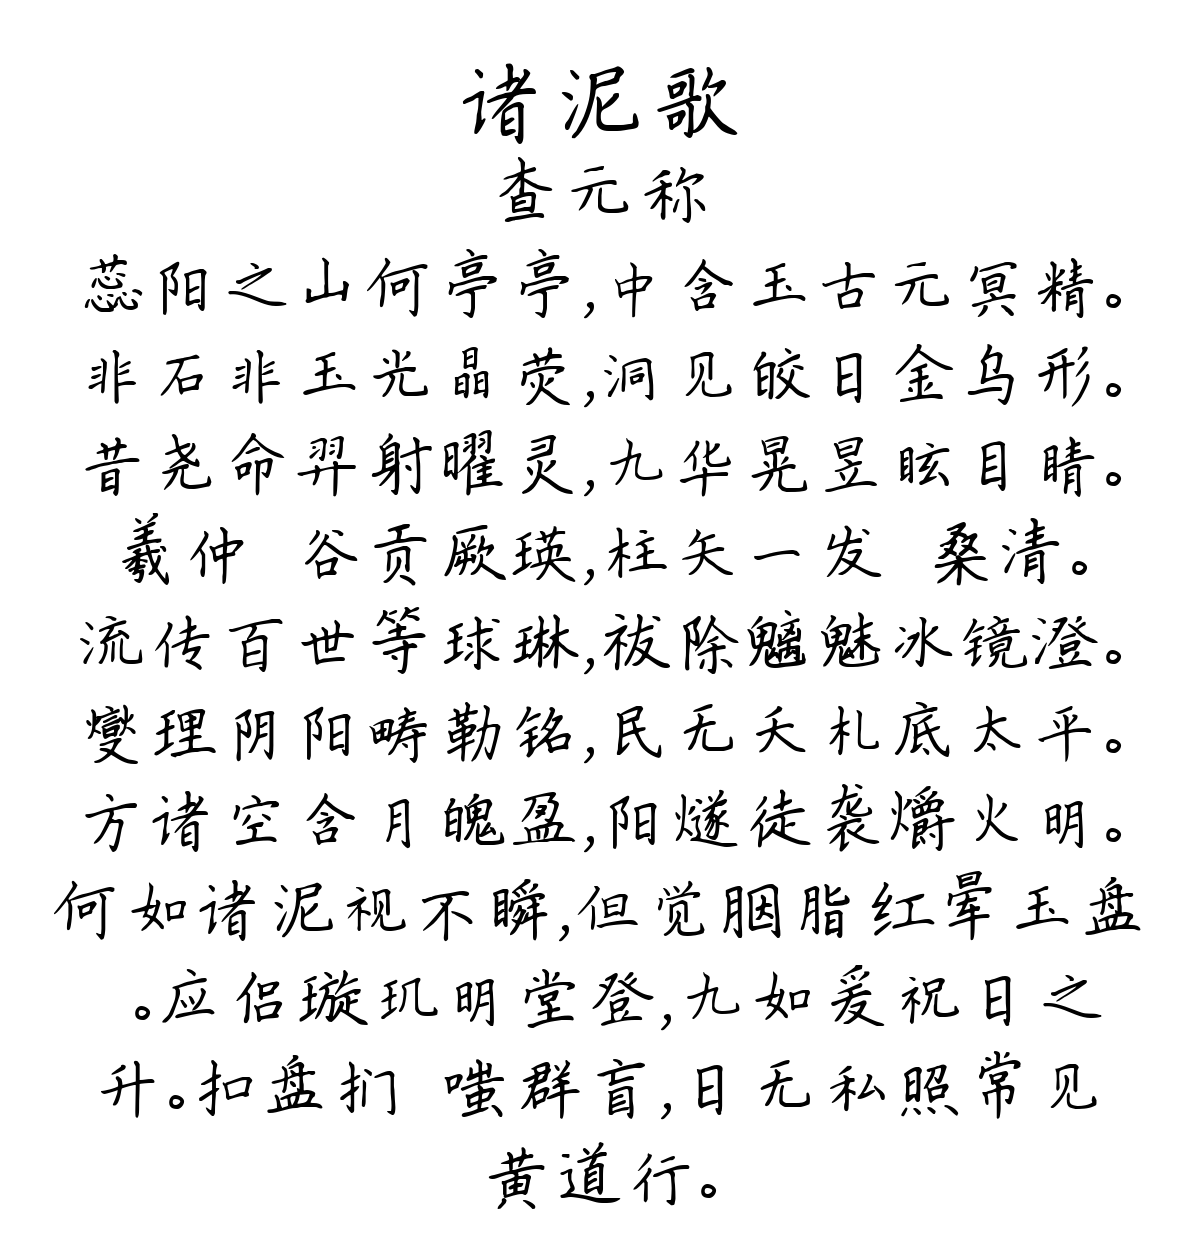 诸泥歌
查元称
蕊阳之山何亭亭,中含玉古元冥精。
非石非玉光晶荧,洞见皎日金乌形。
昔尧命羿射曜灵,九华晃昱眩目睛。
羲仲 谷贡厥瑛,柱矢一发 桑清。
流传百世等球琳,袚除魑魅冰镜澄。
燮理阴阳畴勒铭,民无夭札底太平。
方诸空含月魄盈,阳燧徒袭爝火明。
何如诸泥视不瞬,但觉胭脂红晕玉盘
。应侣璇玑明堂登,九如爰祝日之
升。扣盘扪 嗤群盲,日无私照常见
黄道行。